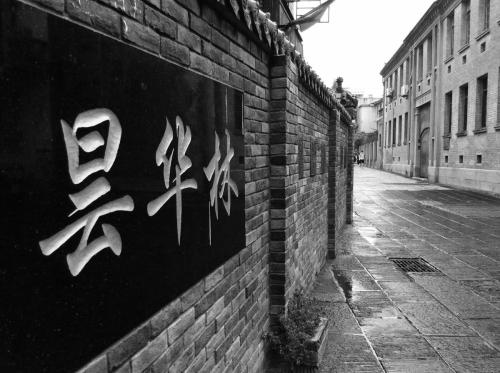 昙华林